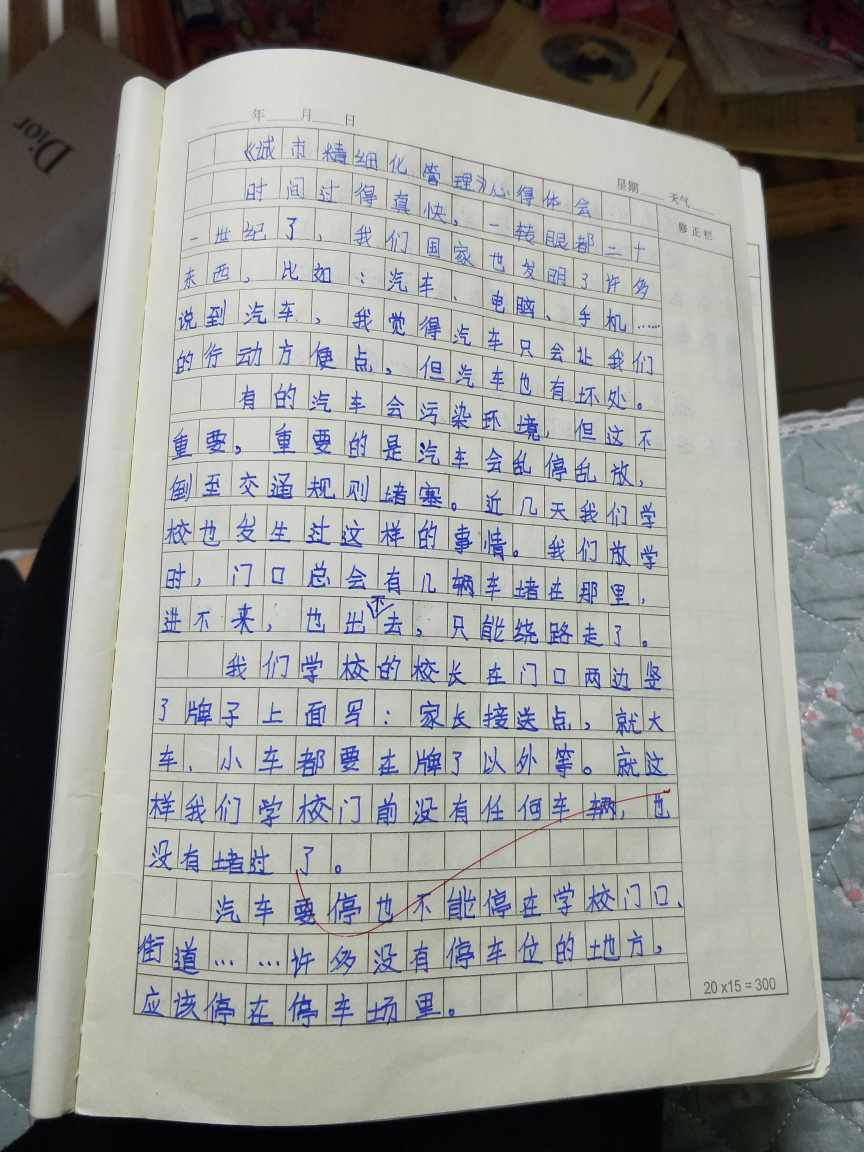 Dior
年 月 日
星期 天气
修正栏
《城市精细化管理》心得体会
时间过得真快，一转眼都二十
一世纪了，我们国家也发明了许多
东西，比如：汽车、电脑、手机……
说到汽车，我觉得汽车只会让我们
的行动方便点，但汽车也有坏处。
有的汽车会污染环境，但这不
重要，重要的是汽车会乱停乱放，
倒至交通规则堵塞。近几天我们学
校也发生过这样的事情。我们放学
时，门口总会有几辆车堵在那里，
进不来，也出不去，只能绕路走了。
我们学校的校长在门口两边竖
了牌子上面写：家长接送点，就大
车、小车都要在牌了以外等。就这
样我们学校门前没有任何车辆，也
没有堵过了。
汽车要停也不能停在学校门口、
街道……许多没有停车位的地方，
应该停在停车场里。
20×15=300